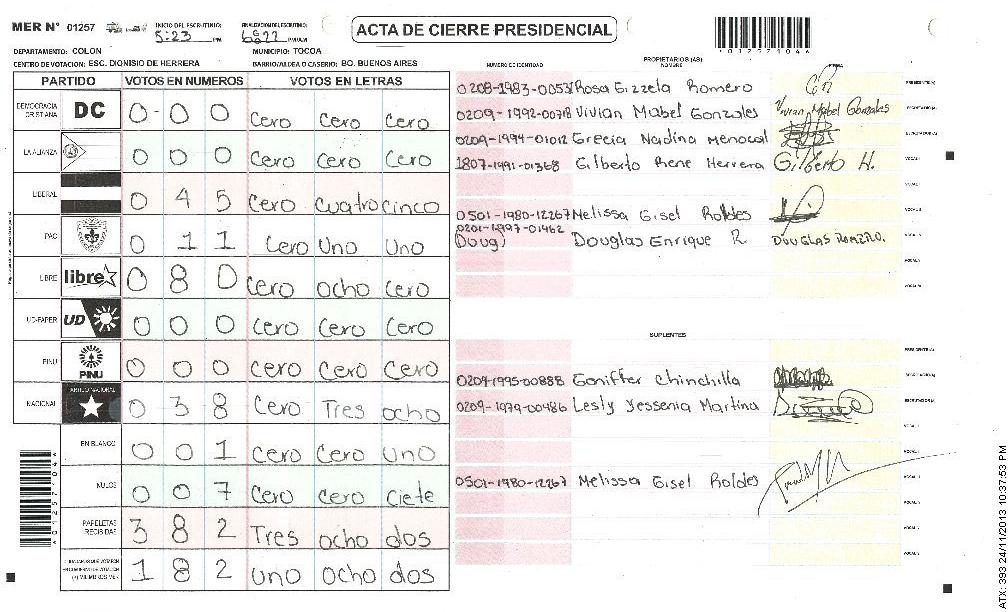 MER N° 01257 INICIO DEL ESCRUTINIO: 5:23 PM FINALIZACION DEL ESCRUTINIO: PM/AM
ACTA DE CIERRE PRESIDENCIAL
DEPARTAMENTO: COLON MUNICIPIO: TOCOA
CENTRO DE VOTACION: ESC. DIONISIO DE HERRERA BARRIO/ALDEA O CASERIO: BO. BUENOS AIRES
PARTIDO VOTOS EN NUMEROS VOTOS EN LETRAS
DEMOCRACIA CRISTIANA DC 0 0 0 Cero Cero Cero
LA ALIANZA 0 0 0 Cero Cero Cero
LIBERAL 0 4 5 Cero Cuatro cinco
PAC 0 1 1 Cero Uno Uno
LIBRE libre 0 8 0 Cero ocho Cero
UD-FAPER UD 0 0 0 Cero Cero Cero
PINU PINU 0 0 0 Cero Cero Cero
NACIONAL PARTIDO NACIONAL 0 3 8 Cero Tres ocho
EN BLANCO 0 0 1 Cero Cero uno
NULOS 0 0 7 Cero Cero Ciete
PAPELETAS RECIBIDAS 3 8 2 Tres ocho dos
1 8 2 uno ocho dos
PROPIETARIOS (AS)
NUMERO DE IDENTIDAD NOMBRE FIRMA
0208-1983-00537 Rosa Gizzela Romero PRESIDENTE(A)
0209-1992-00718 Vivian Mabel Gonzales Vivian Mabel Gonzales SECRETARIO(A)
0209-1994-01012 Grecia Nadina Menocal ESCRUTADOR(A)
1807-1991-01368 Gilberto Rene Herrera Gilberto H. VOCAL I
0501-1980-12267 Melissa Gisel Roldes
0201-1997-01462
(Doug) Douglas Enrique R DOUGLAS ROMERO.
SUPLENTES
PRESIDENTE(A)
0209-1995-00888 Goniffer Chinchilla SECRETARIO(A)
0209-1979-00486 Lesly Yessenia Martina ESCRUTADOR(A)
0501-1980-12267 Melissa Gisel Roldes
ATX: 393 24/11/2013 10:37:53 PM